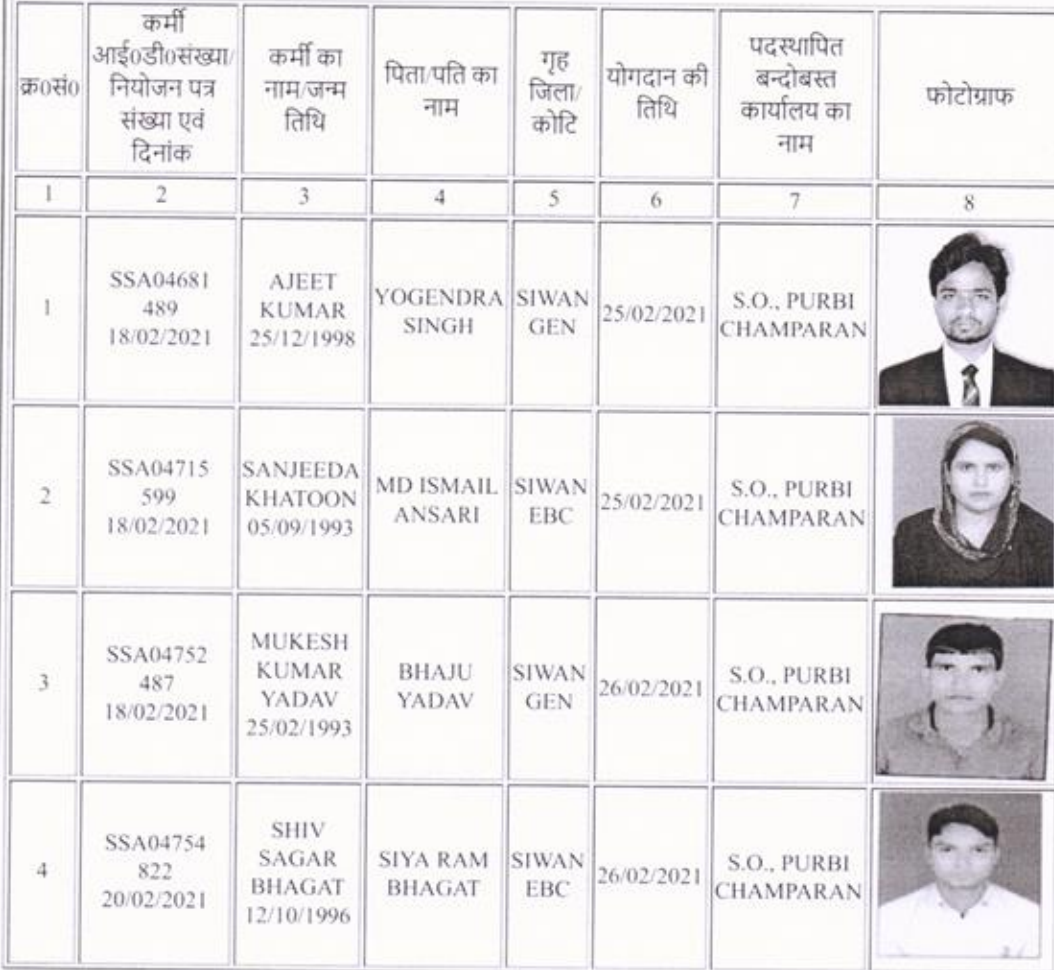 क्र0सं0
कर्मी
आई0डी0संख्या/
नियोजन पत्र
संख्या एवं
दिनांक
कर्मी का
नाम/जन्म
तिथि
पिता/पति का
नाम
गृह
जिला/
कोटि
योगदान की
तिथि
पदस्थापित
बन्दोबस्त
कार्यालय का
नाम
फोटोग्राफ
1
2
3
4
5
6
7
8
1
SSA04681
489
18/02/2021
AJEET
KUMAR
25/12/1998
YOGENDRA
SINGH
SIWAN
GEN
25/02/2021
S.O., PURBI
CHAMPARAN
2
SSA04715
599
18/02/2021
SANJEEDA
KHATOON
05/09/1993
MD ISMAIL
ANSARI
SIWAN
EBC
25/02/2021
S.O., PURBI
CHAMPARAN
3
SSA04752
487
18/02/2021
MUKESH
KUMAR
YADAV
25/02/1993
BHAJU
YADAV
SIWAN
GEN
26/02/2021
S.O., PURBI
CHAMPARAN
4
SSA04754
822
20/02/2021
SHIV
SAGAR
BHAGAT
12/10/1996
SIYA RAM
BHAGAT
SIWAN
EBC
26/02/2021
S.O., PURBI
CHAMPARAN